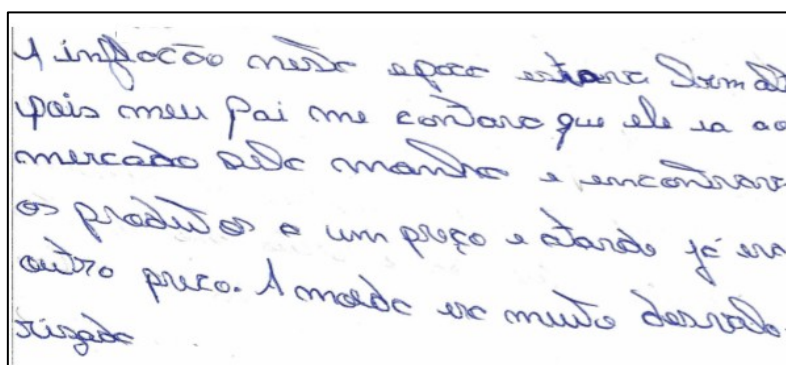 A inflação nesta epoca estava bem alt
pois meu pai me contava que ele ia ao
mercado pela manha e encontrava
os produtos a um preço e atarde já era
outro preco. A moeda era muito desvalo-
rizada